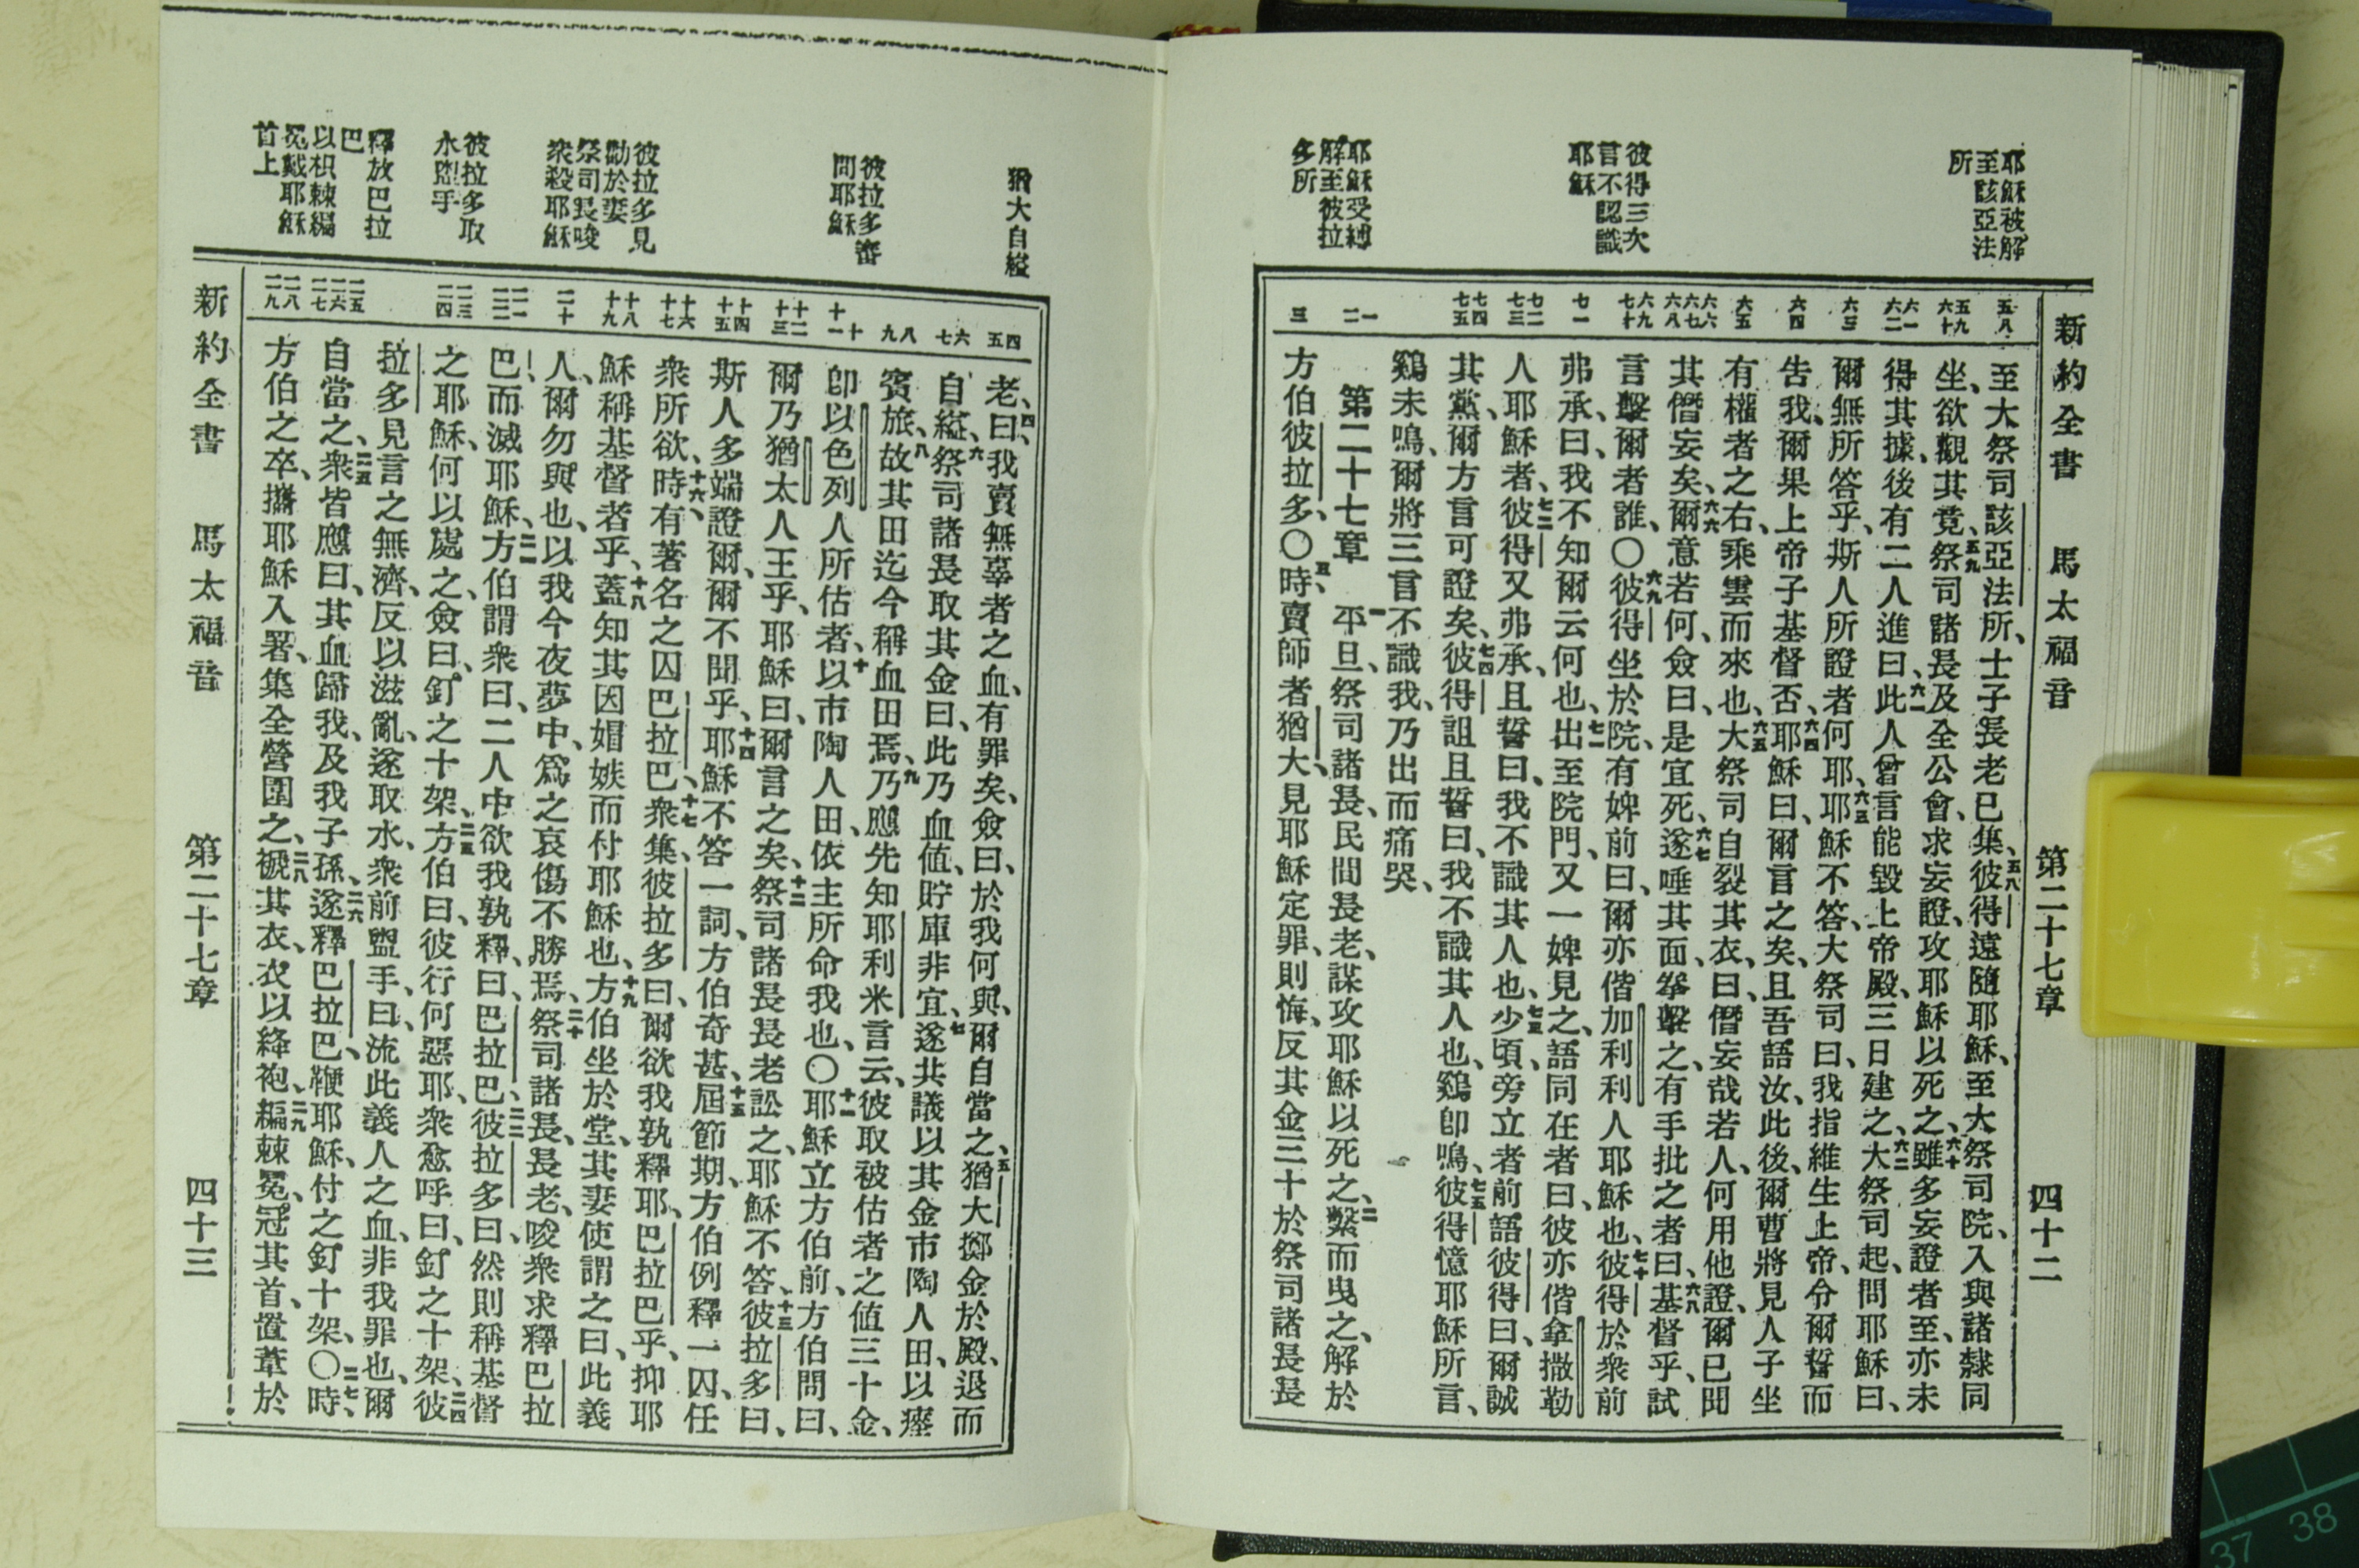 新約全書 馬太福音 第二十七章 四十二
耶穌被解
至該亞法
所
彼得三次
言不認識
耶穌
耶穌受縛
解至彼拉
多所
五八
五九 六十
六一 六二
六三
六四
六五
六六 六七 六八
六九 七十
七一
七二 七三
七四 七五
一 二
三
至大祭司該亞法所、士子長老已集、五八彼得遠隨耶穌、至大祭司院、入與諸隸同
坐、欲觀其竟、五九祭司諸長及全公會、求妄證、攻耶穌以死之、六十雖多妄證者至、亦未
得其據、後有二人進曰、六一此人曾言能毀上帝殿、三日建之、六二大祭司起、問耶穌曰、
爾無所答乎、斯人所證者何耶、六三耶穌不答、大祭司曰、我指維生上帝、令爾誓而
告我、爾果上帝子基督否、六四耶穌曰、爾言之矣、且吾語汝、此後、爾曹將見人子坐
有權者之右、乘雲而來也、六五大祭司自裂其衣、曰、僭妄哉若人、何用他證、爾已聞
其僭妄矣、六六爾意若何、僉曰、是宜死、六七遂唾其面、拳擊之、有手批之者曰、六八基督乎、試
言擊爾者誰、〇六九彼得坐於院、有婢前曰、爾亦偕加利利人耶穌也、七十彼得於衆前
弗承、曰、我不知爾云何也、七一出至院門、又一婢見之、語同在者曰、彼亦偕拿撒勒
人耶穌者、七二彼得又弗承、且誓曰、我不識其人也、七三少頃、旁立者前語彼得曰、爾誠
其黨、爾方言可證矣、七四彼得詛且誓曰、我不識其人也、鷄卽鳴、七五彼得憶耶穌所言、
鷄未鳴、爾將三言不識我、乃出而痛哭、
第二十七章 一平旦、祭司諸長、民間長老、謀攻耶穌以死之、二繫而曳之、解於
方伯彼拉多、〇三時、賣師者猶大、見耶穌定罪、則悔、反其金三十於祭司諸長長
猶大自縊
彼拉多審
問耶穌
彼拉多見
勸於妻
祭司長唆
衆殺耶穌
彼拉多取
水盥手
釋放巴拉
巴
以枳棘編
冕戴耶穌
首上
四 五
六 七
八 九
十 十一
十二 十三
十四 十五
十六 十七
十八 十九
二十
二一 二二
二三 二四
二五 二六 二七
二八 二九
老、四曰、我賣無辜者之血、有罪矣、僉曰、於我何與、爾自當之、五猶大擲金於殿、退而
自縊、六祭司諸長取其金曰、此乃血値、貯庫非宜、七遂共議以其金市陶人田、以瘞
賓旅、八故其田迄今稱血田焉、九乃應先知耶利米言云、彼取被估者之値三十金、
卽以色列人所估者、十以市陶人田、依主所命我也、〇十一耶穌立方伯前、方伯問曰、
爾乃猶太人王乎、耶穌曰、爾言之矣、十二祭司諸長長老訟之、耶穌不答、十三彼拉多曰、
斯人多端證爾、爾不聞乎、十四耶穌不答一詞、方伯奇甚、十五屆節期、方伯例釋一囚、任
衆所欲、十六時、有著名之囚巴拉巴、十七衆集、彼拉多曰、爾欲我孰釋耶、巴拉巴乎、抑耶
穌稱基督者乎、十八蓋知其因媢嫉而付耶穌也、十九方伯坐於堂、其妻使謂之曰、此義
人、爾勿與也、以我今夜夢中、爲之哀傷不勝焉、二十祭司諸長、長老、唆衆求釋巴拉
巴、而滅耶穌、二一方伯謂衆曰、二人中欲我孰釋、曰、巴拉巴、二二彼拉多曰、然則稱基督
之耶穌、何以處之、僉曰、釘之十架、二三方伯曰、彼行何惡耶、衆愈呼曰、釘之十架、二四彼
拉多見言之無濟、反以滋亂、遂取水、衆前盥手、曰、流此義人之血、非我罪也、爾
自當之、二五衆皆應曰、其血歸我、及我子孫、二六遂釋巴拉巴、鞭耶穌、付之釘十架、〇二七時、
方伯之卒、攜耶穌入署、集全營圍之、二八褫其衣、衣以絳袍、二九編棘冕、冠其首、置葦於
新約全書 馬太福音 第二十七章 四十三
37 38